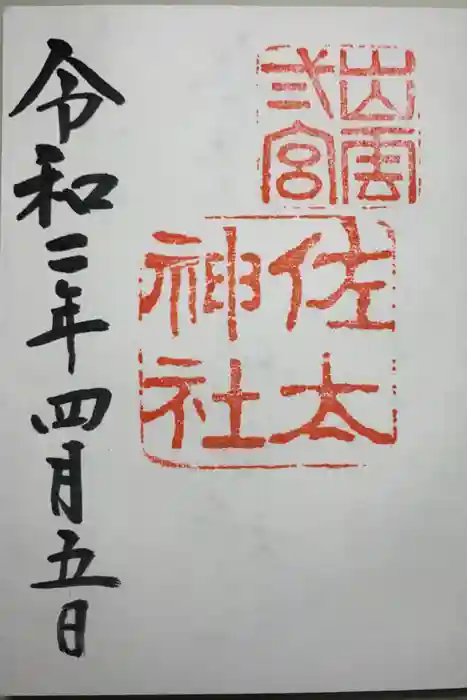 出雲
弐宮
佐太
神社
令和二年四月五日